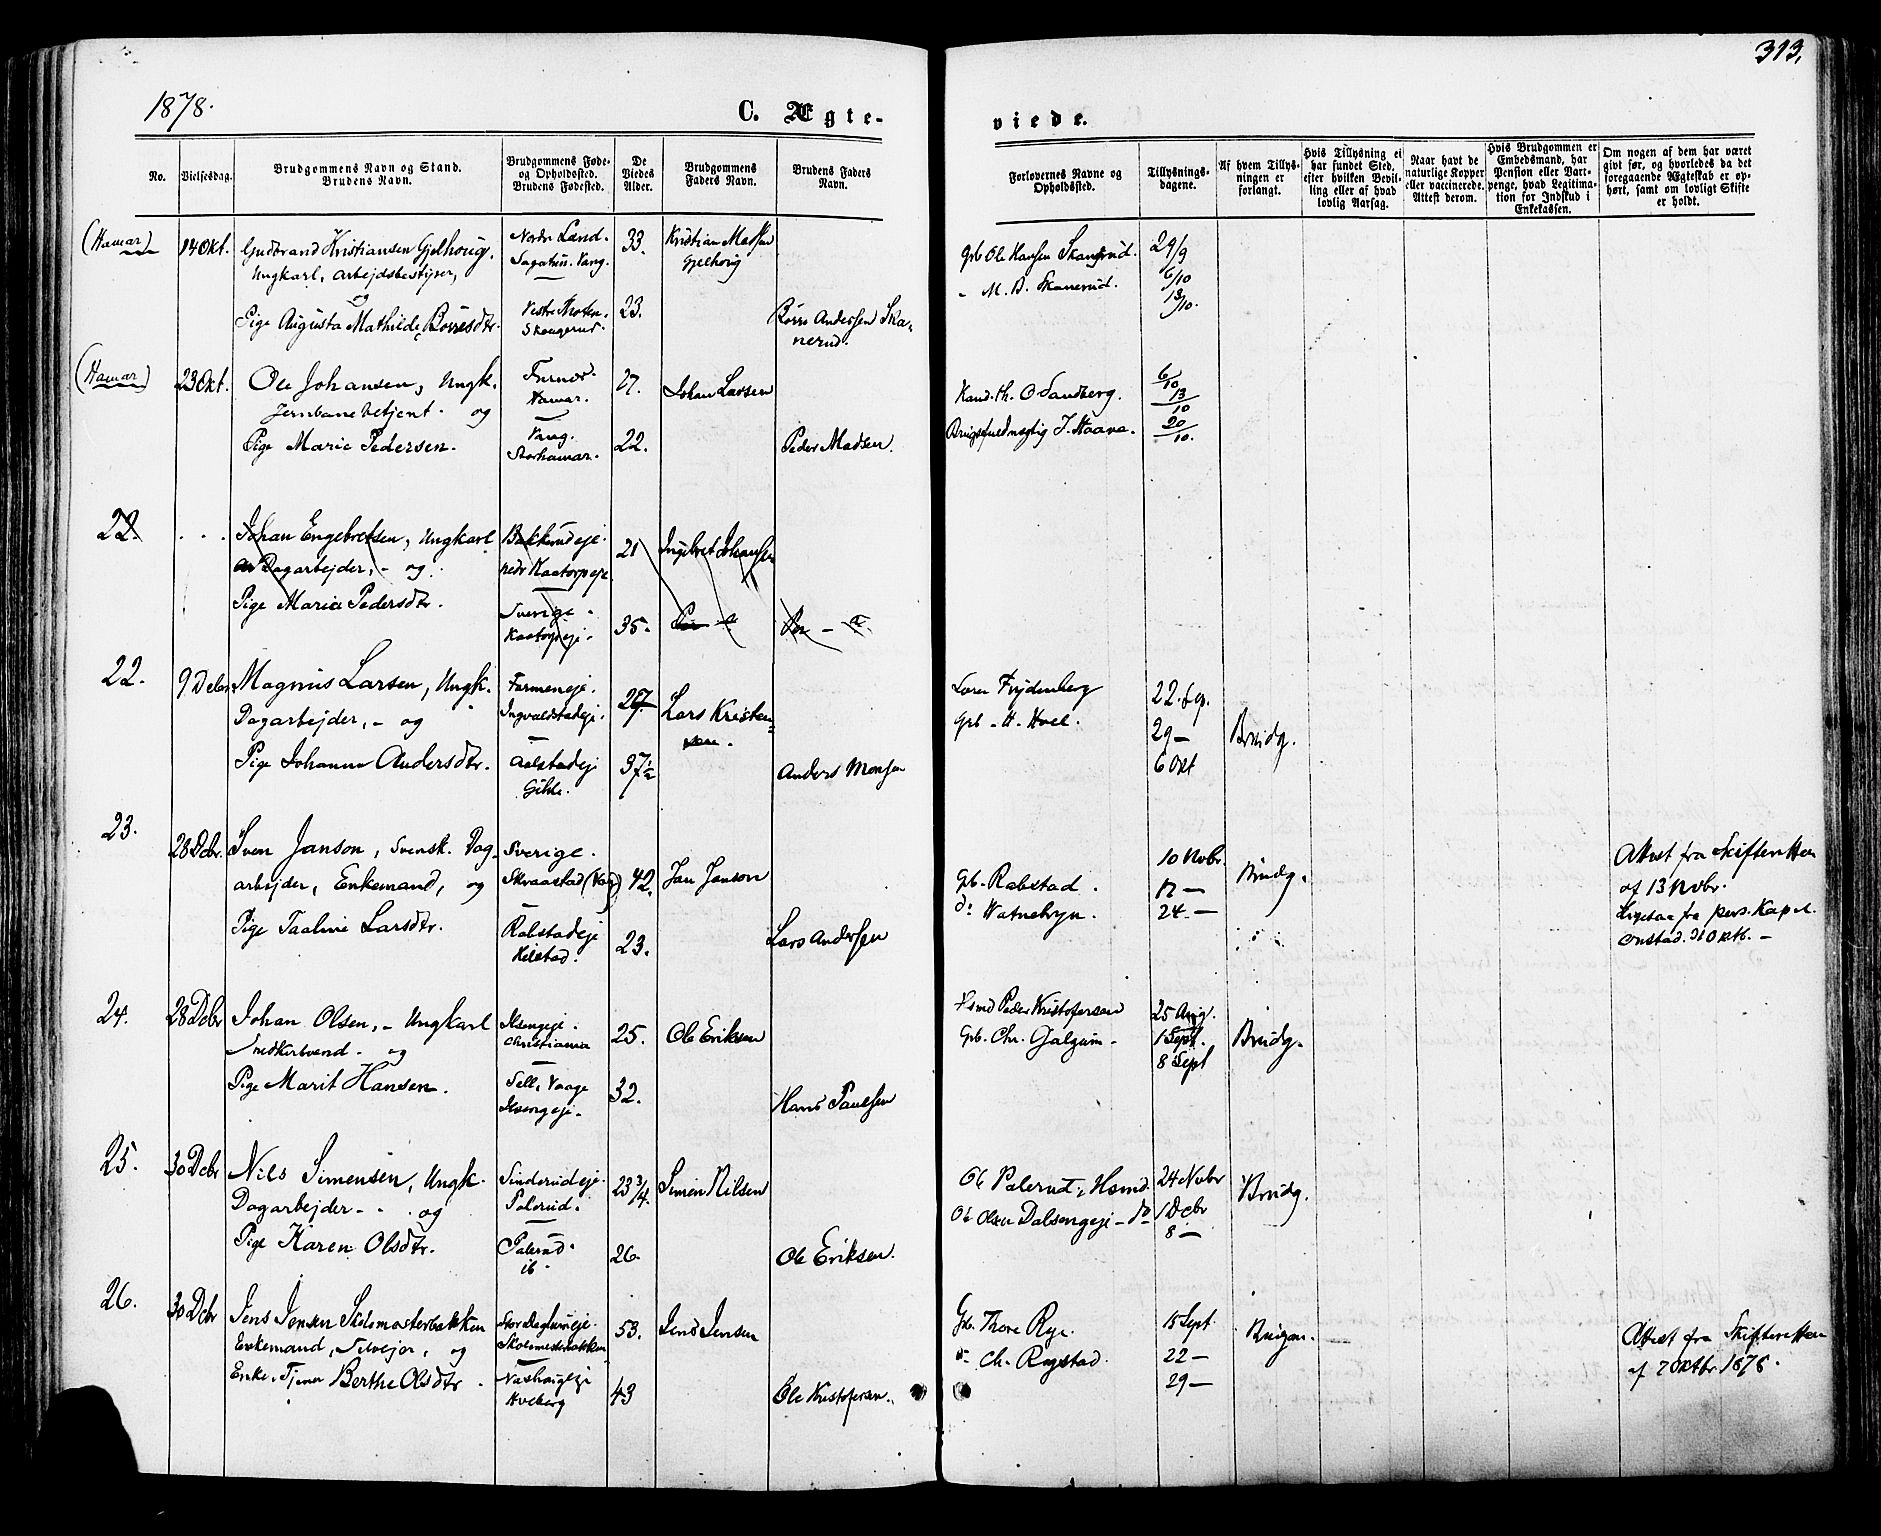 313.
1878.
C. Ægte-
viede.
No.
Vielsesdag.
Brudgommens Navn og Stand.
Brudens Navn.
Brudgommens Føde-
og Opholdssted.
Brudens Fødested.
De
Viedes
Alder.
Brudgommens
Faders Navn.
Brudens Faders
Navn.
Forlovernes Navne og
Opholdssted.
Tillysnings-
dagene.
Af hvem Tillys-
ningen er
forlangt.
Hvis Tillysning ei
har fundet Sted,
efter hvilken Bevil-
ling eller af hvad
lovlig Aarsag.
Naar havt de
naturlige Kopper
eller vaccinerede.
Attest derom.
Hvis Brudgommen er
Embedsmand, har
Pension eller Vart-
penge, hvad Legitima-
tion for Indskud i
Enkekassen.
Om nogen af dem har været
givt før, og hvorledes da det
foregaaende Ægteskab er op-
hørt, samt om lovligt Skifte
er holdt.
(Hamar)
14 Okt.
Gudbrand Kristiansen Gjelhoug,
Ungkarl, arbejdsbestyrer,
og
Pige Augusta Mathilde Børresdtr.
Nordre Land.
Sagatun. Vang.
Vestre Thoten.
33.
23.
Kristian Madsen
Gjelhoug
Børre Andersen Ska-
nerud.
Grb Ole Hansen
- M. B. Skanerud.
29/9
6/10
13/10.
(Hamar)
23 Okt.
Ole Johansen, Ungk.
Jernbanebetjent. og
Pige Marie Pedersen.
Furnæs.
Hamar.
Vang.
Storhamar.
27.
22.
Johan Larsen
Peder Madsen.
Kand. th. O Sandberg.
Brugsfuldmægtig J. Haave.
6/10
13/10
20/10.
22.
. . .
Johan Engebretsen, Ungkarl
Dagarbejder, - og
Pige Maria Pedersdtr.
Bakkerudeje.
nedr Kaatorpeje
Sverige.
Kaatorpeje.
21
35.
Ingebret Johansen
22.
9 Debr
Magnus Larsen, Ungk.
Dagarbejder, - og
Pige Johanne Andersdtr.
Farmeneje.
Ingvaldstadeje.
Aalstadeje
Gihle.
37 1/2
Lars Kristen-
sen.
Anders Monsen
Loren Frydenberg
Grb - H. Hoel.
22. Sep.
29 -
6 Okt
Brudg.
23.
28 Dcbr.
Sven Janson, Svensk. Dag-
arbejder, Enkemand, og
Pige Taaline Larsdtr.
Sverige.
Skraastad (Vang)
Rabstadeje
Kilstad.
42.
23.
Jan Janson
Lars Andersen
Gb. Rabstad.
do Watnebryn.
10 Novbr.
17 -
24 -
Brudg.
Attest fra Skifteretten
af 13 Novbr.
Ligesaa fra pers. Kapel.
Onstad. 31 Okt. -
24.
28 Dcbr
Johan Olsen, - Ungkarl
Smedkersvend - og
Pige Marit Hansen.
Ilsengeje.
Christiania
Sell, Vaage
Ilsengeje.
25.
32.
Ole Eriksen
Hans Paulsen
Hsmd Peder Kristofersen
Gb. Chr. Galgum -
25 Aug.
1 Sept.
8 Sept
Brudg.
25.
30 Dcbr
Nils Simensen, Ungk.
Dagarbejder - - . og
Pige Karen Olsdtr.
Sinderudeje.
Palerud.
Palerud
ib.
23 3/4.
26.
Simen Nilsen
Ole Eriksen.
Ole Palerud, Hsmd.
Ole Olsen Dalsengeje - do
24 Novbr
1 Dcbr
8 -
Brudg.
26.
30 Dcbr
Jens Jensen Skolemesterbakken
Enkemand, Selvejer, og
Enke, Tjener Berthe Olsdtr.
Skolemesterbakken
Hveberg
53.
43
Jens Jensen
Ole Kristofersen.
Gb. Thore Rye.
do Ch. Rogstad.
15 Sept
22 -
29 -
Brudgom.
Attest fra Skifteretten
af 7 Oktbr 1878.